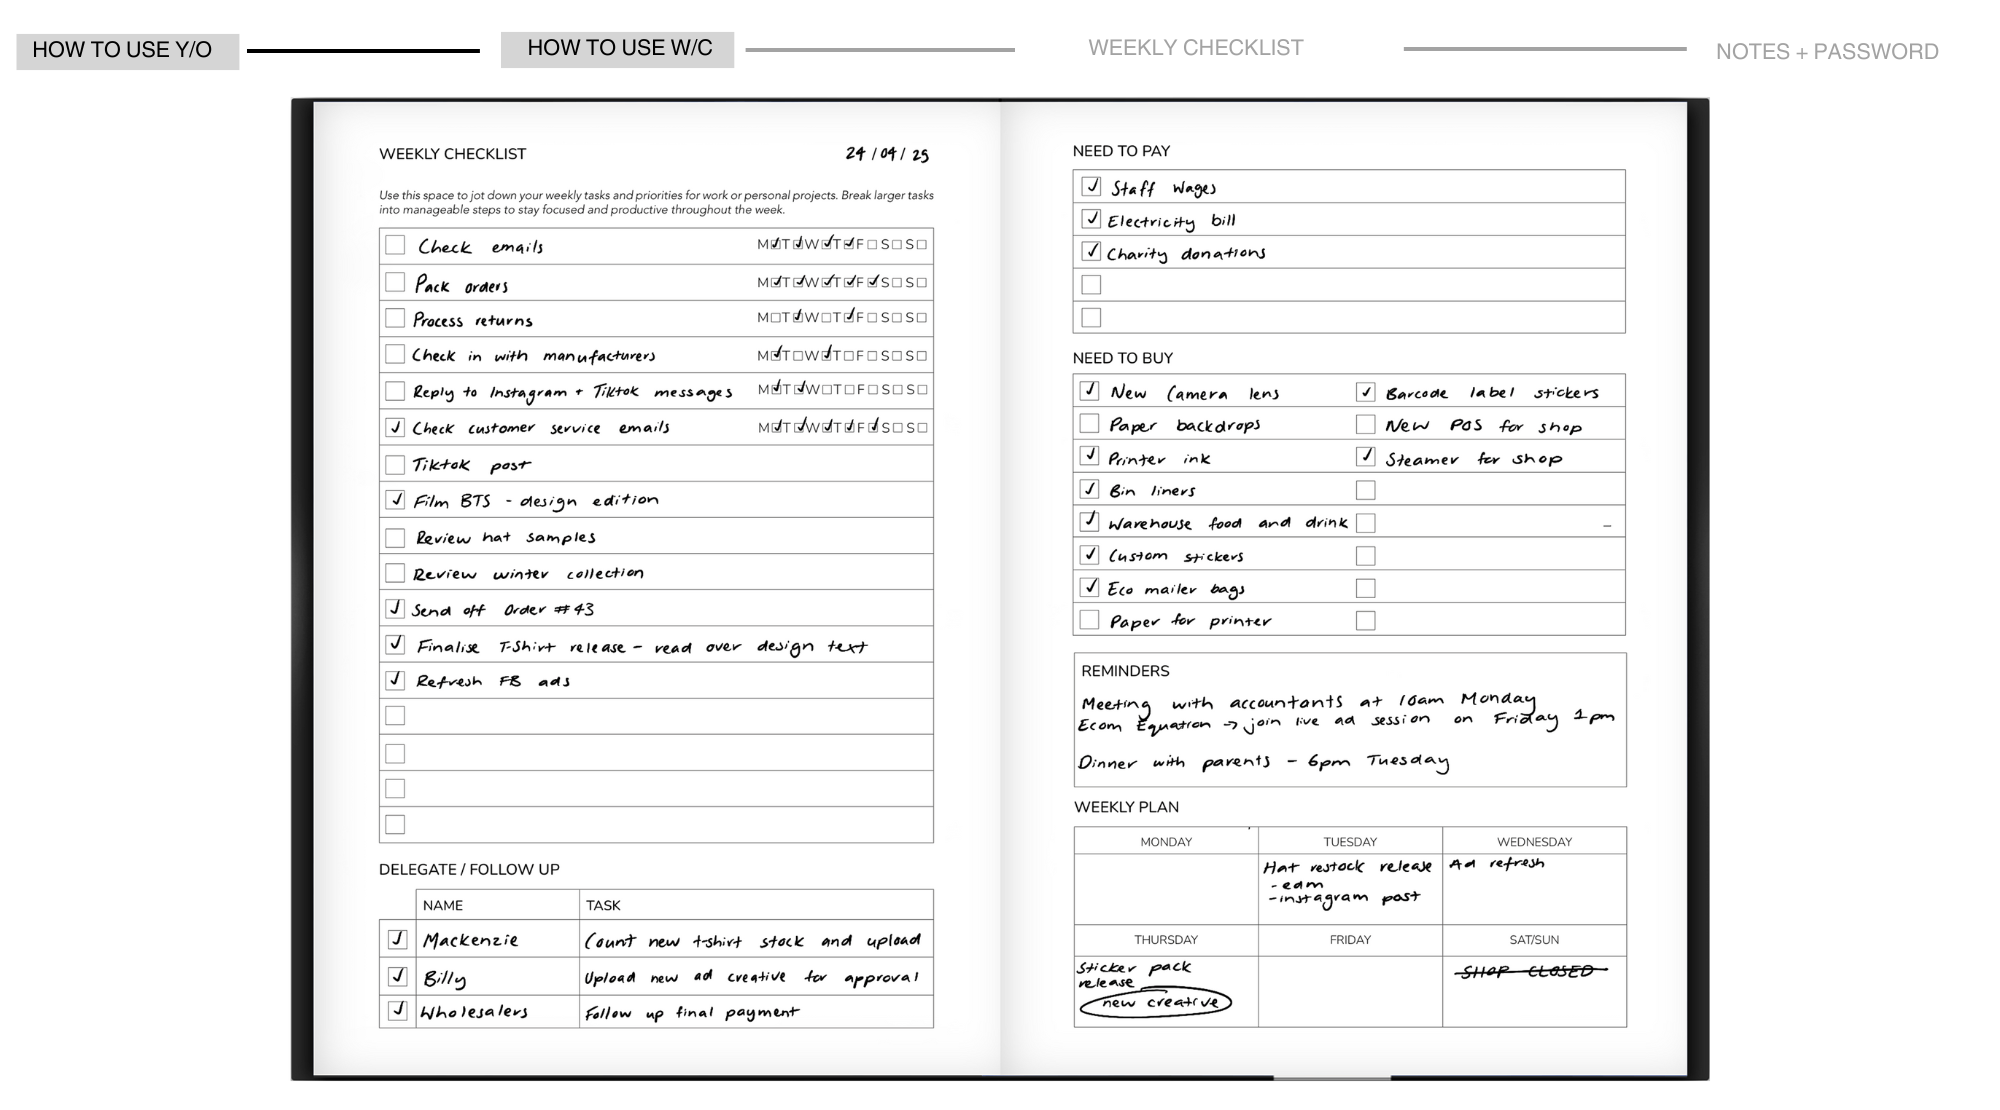 HOW TO USE Y/O
HOW TO USE W/C
WEEKLY CHECKLIST
NOTES + PASSWORD
WEEKLY CHECKLIST
24 / 04 / 25
Use this space to jot down your weekly tasks and priorities for work or personal projects. Break larger tasks
into manageable steps to stay focused and productive throughout the week.
Check emails M T W T F S S
Pack orders M T W T F S S
Process returns M T W T F S S
Check in with manufacturers M T W T F S S
Reply to Instagram + Tiktok messages M T W T F S S
Check customer service emails M T W T F S S
Tiktok post
Film BTS - design edition
Review hat samples
Review winter collection
Send off Order #43
Finalise T-Shirt release - read over design text
Refresh FB ads
DELEGATE / FOLLOW UP
NAME TASK
Mackenzie Count new t-shirt stock and upload
Billy Upload new ad creative for approval
Wholesalers Follow up final payment
NEED TO PAY
Staff Wages
Electricity bill
Charity donations
NEED TO BUY
New Camera lens Barcode label stickers
Paper backdrops New POS for shop
Printer ink Steamer for shop
Bin liners
Warehouse food and drink
Custom stickers
Eco mailer bags
Paper for printer
REMINDERS
Meeting with accountants at 10am Monday
Ecom Equation → join live ad session on Friday 1pm
Dinner with parents - 6pm Tuesday
WEEKLY PLAN
MONDAY TUESDAY WEDNESDAY
Hat restock release Ad refresh
- edm
- instagram post
THURSDAY FRIDAY SAT/SUN
Sticker pack SHOP CLOSED
release
new creative